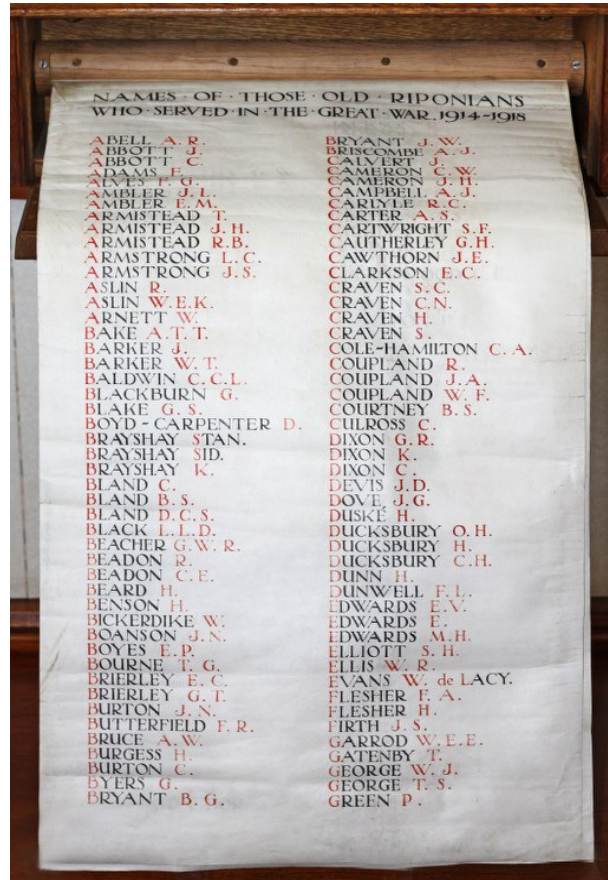 NAMES · OF · THOSE · OLD · RIPONIANS
WHO · SERVED · IN · THE · GREAT · WAR. 1914-1918
ABELL A. R.
ABBOTT J.
ABBOTT C.
ADAMS F.
ALVES F. G.
AMBLER J. L.
AMBLER E. M.
ARMISTEAD T.
ARMISTEAD J. H.
ARMISTEAD R. B.
ARMSTRONG L. C.
ARMSTRONG J. S.
ASLIN R.
ASLIN W. E. K.
ARNETT W.
BAKE A. T. T.
BARKER J.
BARKER W. T.
BALDWIN C. C. L.
BLACKBURN G.
BLAKE G. S.
BOYD - CARPENTER D.
BRAYSHAY STAN.
BRAYSHAY SID.
BRAYSHAY K.
BLAND C.
BLAND B. S.
BLAND D. C. S.
BLACK L. L. D.
BEACHER G. W. R.
BEADON R.
BEADON C. E.
BEARD H.
BENSON H.
BICKERDIKE W.
BOANSON J. N.
BOYES E. P.
BOURNE T. G.
BRIERLEY E. C.
BRIERLEY G. T.
BURTON J. N.
BUTTERFIELD F. R.
BRUCE A. W.
BURGESS H.
BURTON C.
BYERS G.
BRYANT B. G.
BRYANT J. W.
BRISCOMBE A. J.
CALVERT J.
CAMERON C. W.
CAMERON J. H.
CAMPBELL A. J.
CARLYLE R. C.
CARTER A. S.
CARTWRIGHT S. F.
CAUTHERLEY G. H.
CAWTHORN J. E.
CLARKSON E. C.
CRAVEN S. C.
CRAVEN C. N.
CRAVEN H.
CRAVEN S.
COLE-HAMILTON C. A.
COUPLAND R.
COUPLAND J. A.
COUPLAND W. F.
COURTNEY B. S.
CULROSS C.
DIXON G. R.
DIXON K.
DIXON C.
DEVIS J. D.
DOVE J. G.
DUSKE H.
DUCKSBURY O. H.
DUCKSBURY H.
DUCKSBURY C. H.
DUNN H.
DUNWELL F. L.
EDWARDS E. V.
EDWARDS E.
EDWARDS M. H.
ELLIOTT S. H.
ELLIS W. R.
EVANS W. de LACY.
FLESHER F. A.
FLESHER H.
FIRTH J. S.
GARROD W. E. E.
GATENBY T.
GEORGE W. J.
GEORGE T. S.
GREEN P.